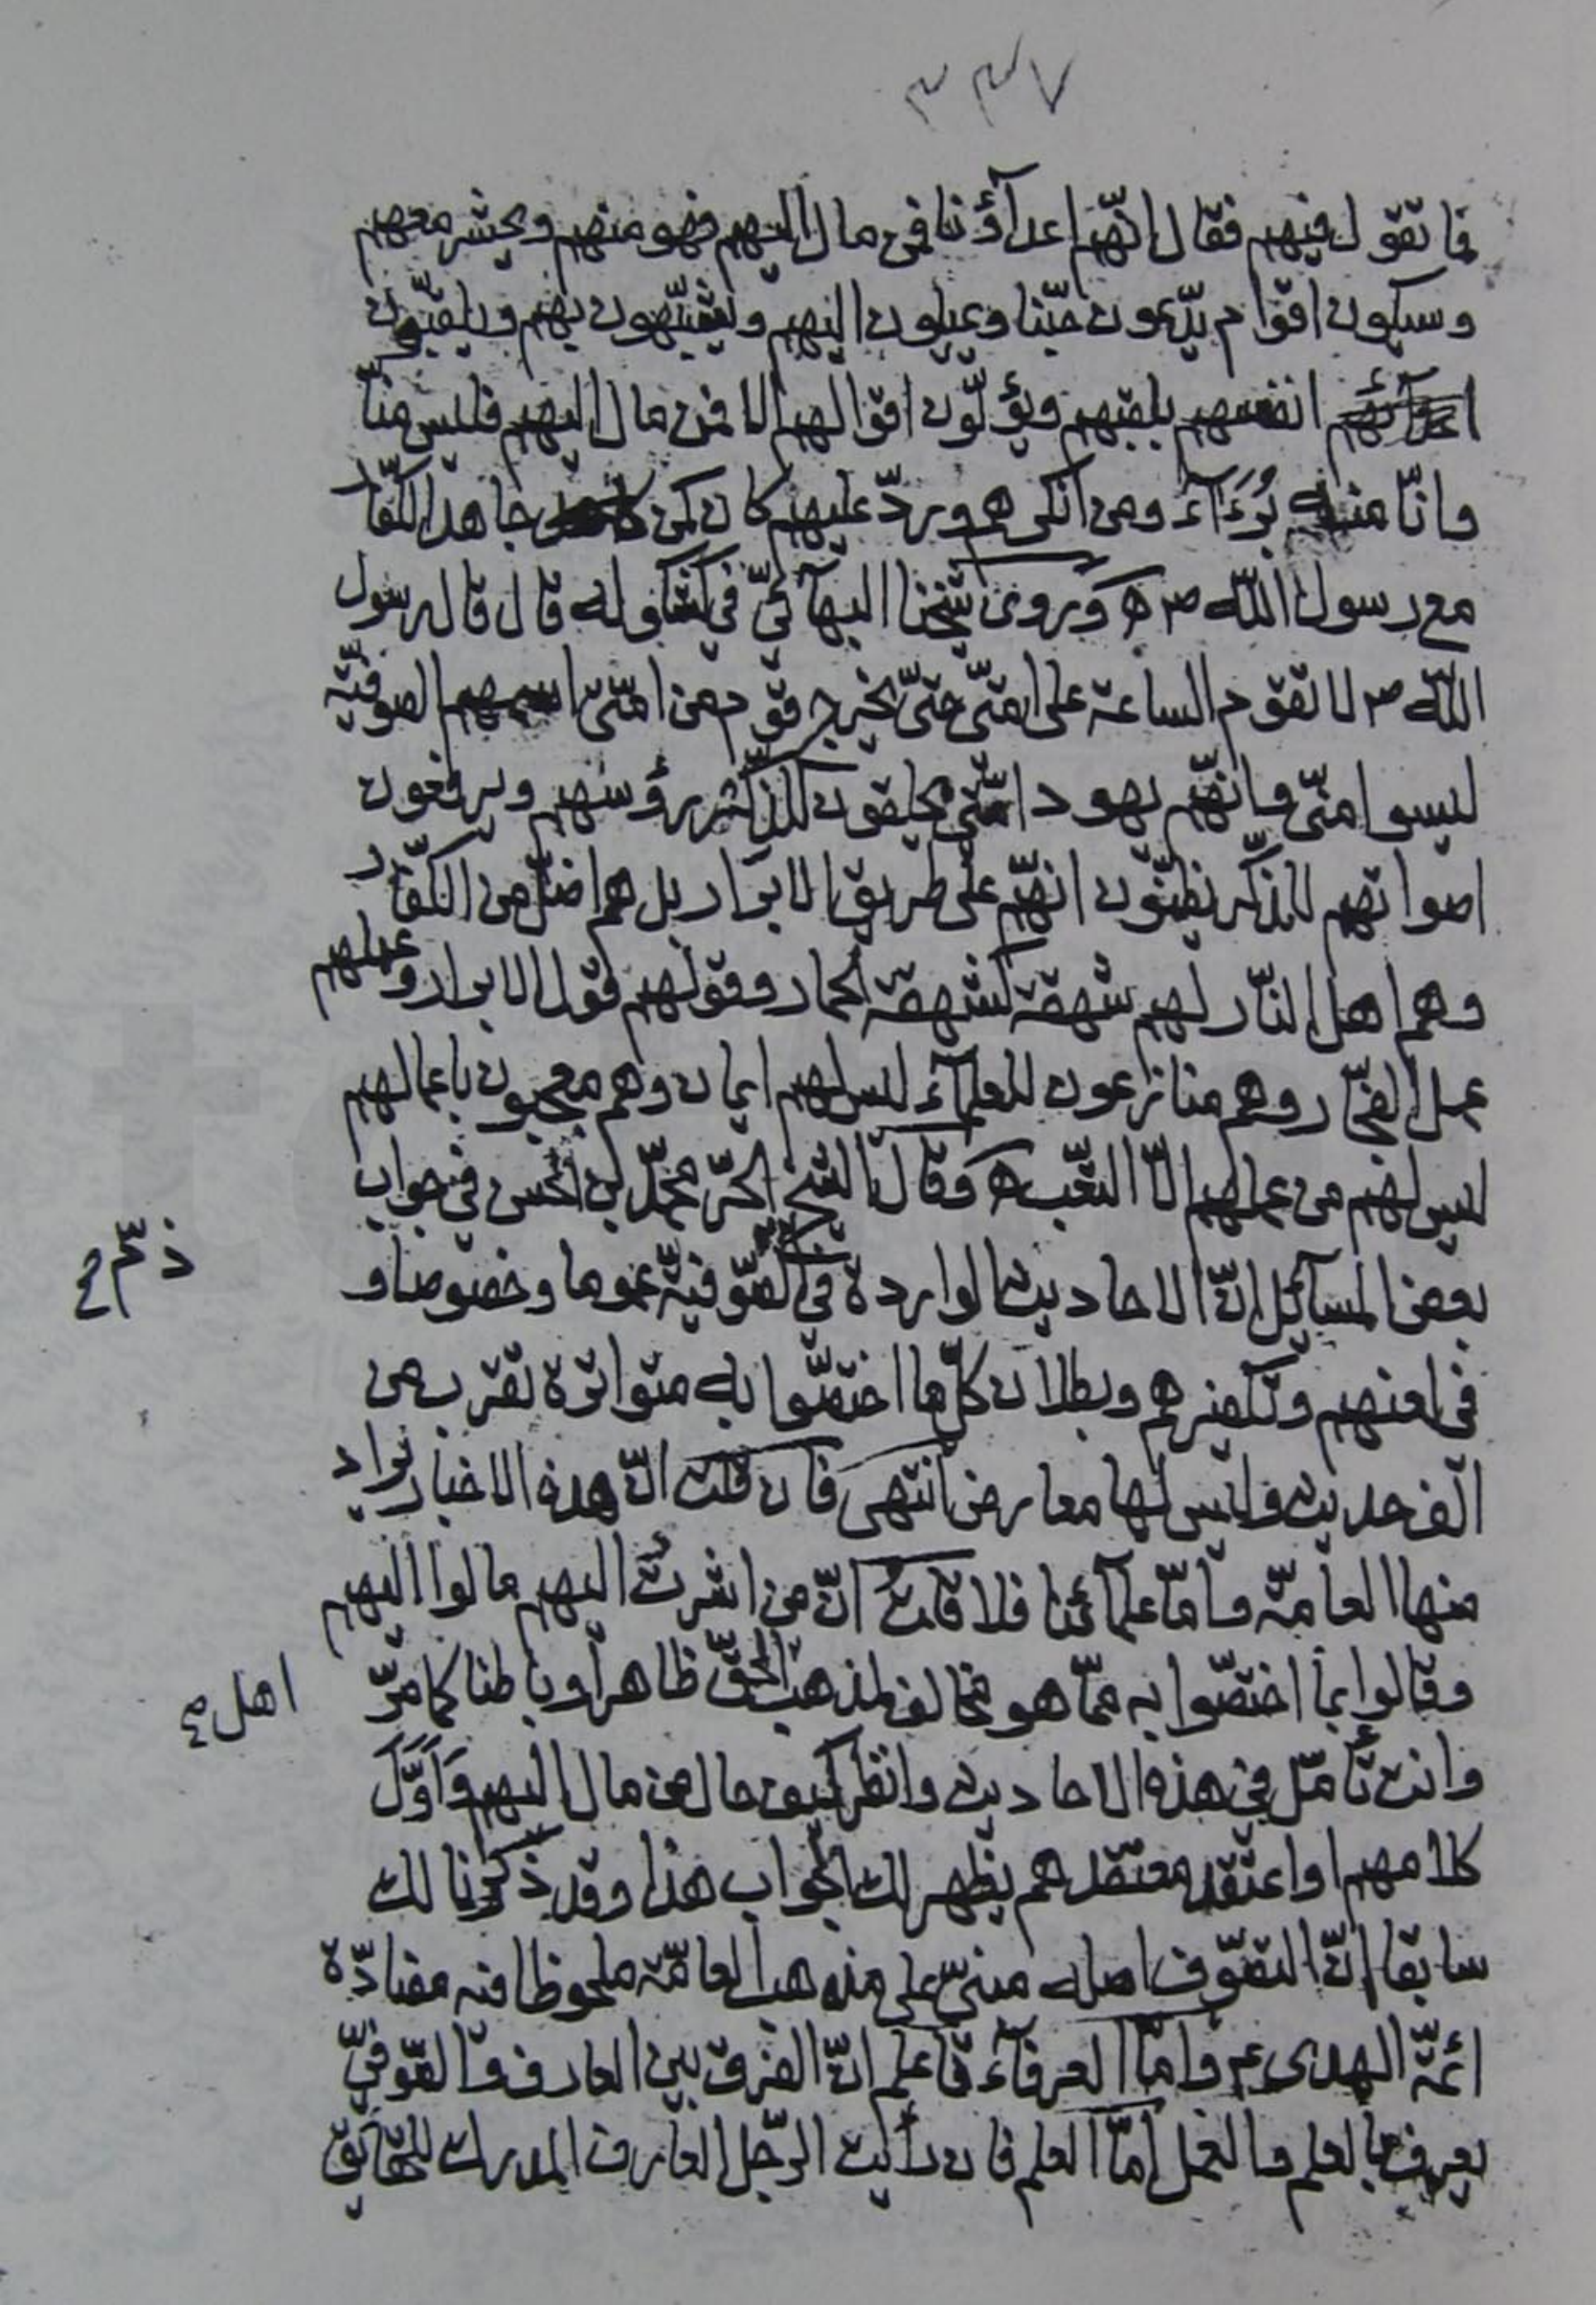 ٣٣٧
فما تقول فيهم فقال انّهم اعدآؤنا فمن مال اليهم فهو منهم ويحشر معهم
وسيكون اقوام يدّعون حبّنا ويميلون اليهم ويتشبّهون بهم ويلقّبون
انفسهم بلقبهم ويؤلّون اقوالهم الا فمن مال اليهم فليس منّا
وانّا منه بُرَءَآء ومن انكرهم وردّ عليهم كان كمن جاهد الكفّار
مع رسول اللّه ص ه وروى شيخنا البهآئيّ في كشكوله قال قال رسول
اللّه ص لا تقوم الساعة على امّتي حتّى يخرج قوم من امّتي اسمهم الصوفيّة
ليسوا منّي وانّهم يهود امّتي يحلقون للذكر رؤسهم ويرفعون
اصواتهم للذّكر يظنّون انّهم على طريق الابرار بل هم اضلّ من الكفّار
وهم اهل النّار لهم شهقة كشهقة الحمار وقولهم قول الابرار وعملهم
عمل الفجّار وهم منازعون للعلمآء ليس لهم ايمان وهم معجبون باعمالهم
ليس لهم من عملهم الّا التعب ه وقال الشيخ الحرّ محمّد بن الحسن في جواب
بعض المسآئل انّ الاحاديث الواردة في الصّوفيّة عموما وخصوصا و
ذمّ
في لعنهم وتكفيرهم وبطلان كلّ ما اختصّوا به متواترة تقرب من
الف حديث وليس لها معارض انتهى فان قلت انّ هذه الاخبار يراد
منها العامّة وامّا علمآئنا فلا قلت انّ من اشرت اليهم مالوا اليهم
وقالوا بما اختصّوا به ممّا هو مخالف لمذهب الحقّ ظاهرا وباطنا كما مرّ
اهل
وانت تأمّل في هذه الاحاديث وانظر كيف حال من مال اليهم وَاَوَّلَ
كلامهم او اعتقد معتقدهم يظهر لك الجواب هذا وقد ذكرنا لك
سابقا انّ التصّوف اصله مبنيّ على مذهب العامّة ملحوظا فيه مضادّة
ائمّة الهدى ع وامّا العرفآء فاعلم انّ الفرق بين العارف والصّوفيّ
يعرف بالعلم والعمل امّا العلم فان رأيت الرّجل العارف المدرك للحقآئق